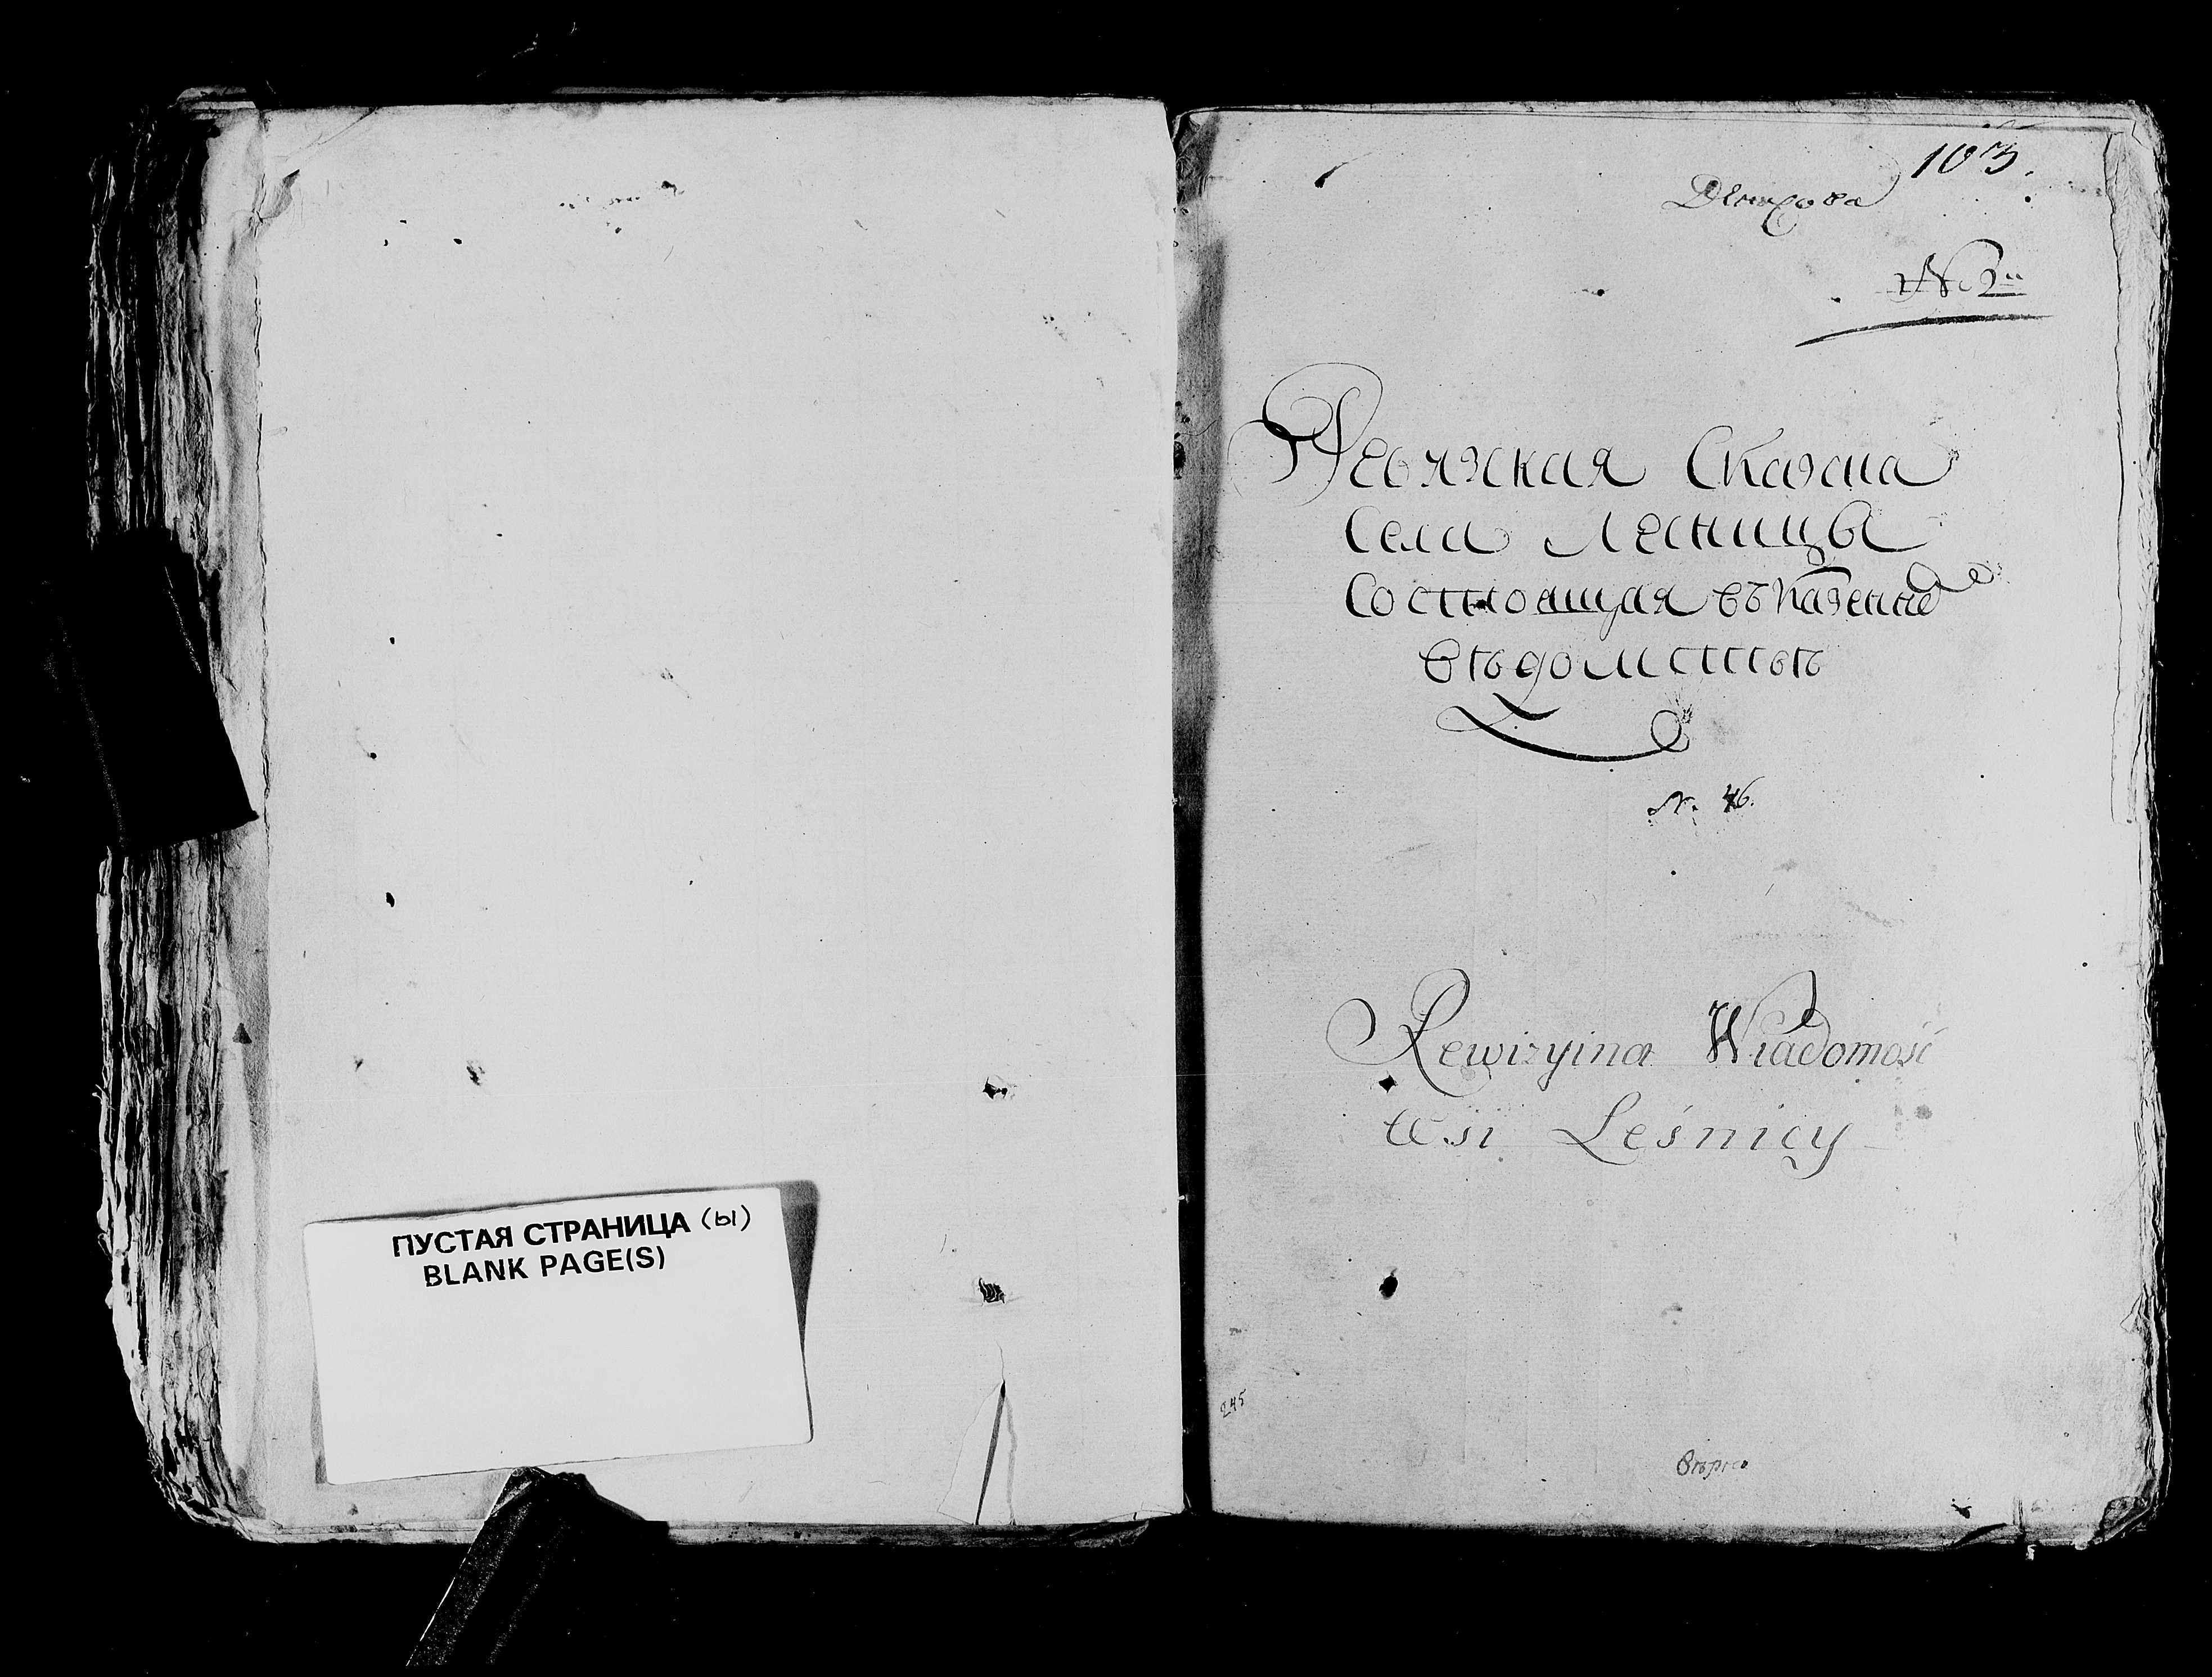 ПУСТАЯ СТРАНИЦА (ы)
BLANK PAGE(S)
103.
№ 2й
Ревизкая Сказка
Села Лесницы
Состоющая въ Казенно
вѣдомствѣ
N. 46.
Rewizyina Wiadomość
Wsi Leśnicy
245